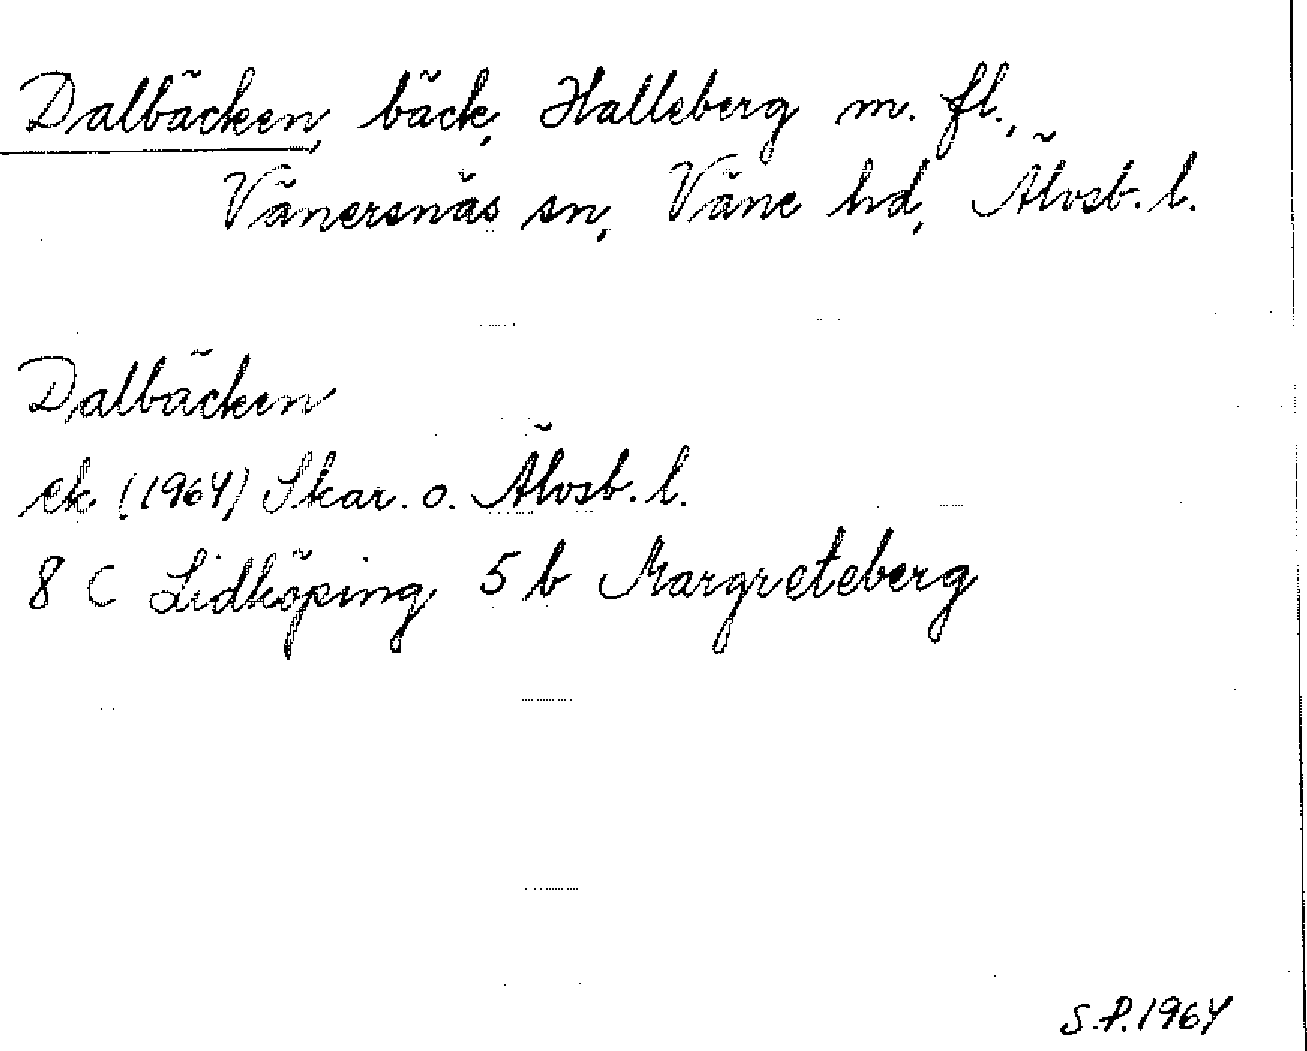 Dalbäcken, bäck, Halleberg m. fl.,
Vänersnäs sn, Väne hd, Älvsb. l.
Dalbäcken
ek. (1964) Skar. o. Älvsb. l.
8 C Lidköping 5 b Margreteberg
S.P. 1964